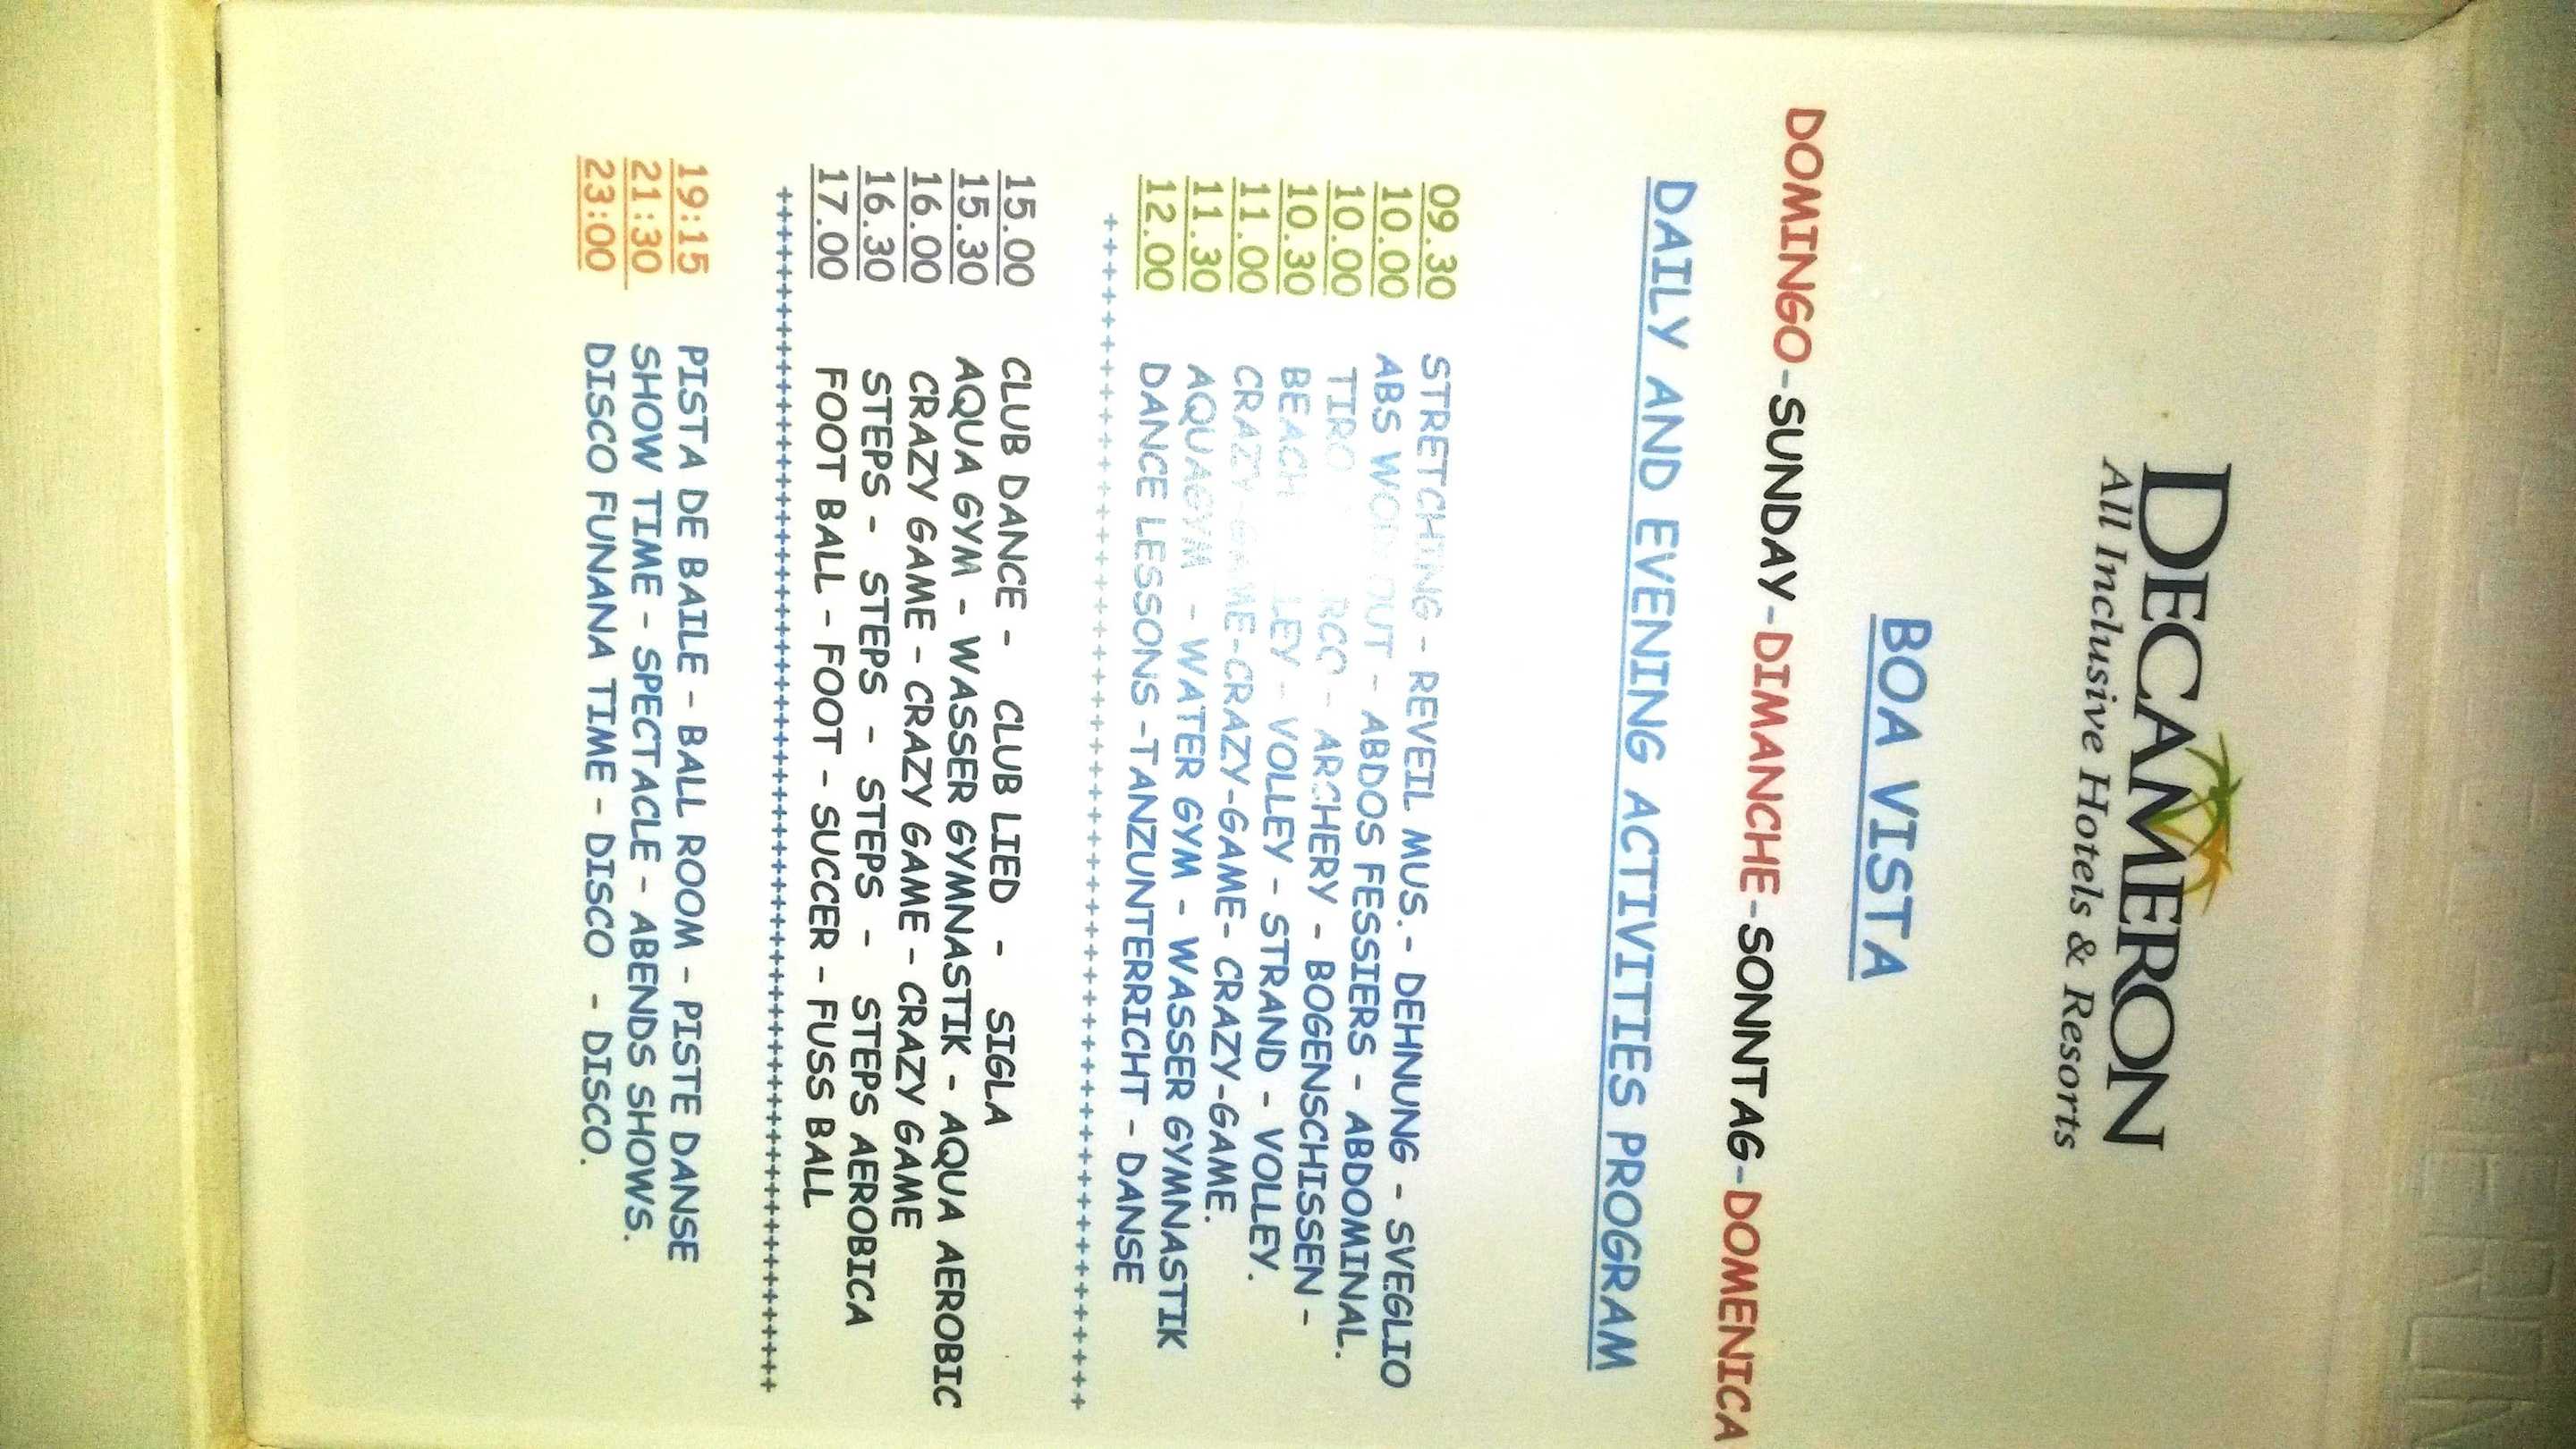 DECAMERON
All Inclusive Hotels & Resorts
BOA VISTA
DOMINGO-SUNDAY-DIMANCHE-SONNTAG-DOMENICA
DAILY AND EVENING ACTIVITIES PROGRAM
09.30 STRETCHING - REVEIL MUS. - DEHNUNG - SVEGLIO
10.00 ABS WORK OUT - ABDOS FESSIERS - ABDOMINAL.
10.00 TIRO - ARCHERY - BOGENSCHISSEN -
10.30 BEACH - VOLLEY - STRAND - VOLLEY.
11.00 CRAZY-GAME-CRAZY-GAME- CRAZY-GAME.
11.30 AQUAGYM - WATER GYM - WASSER GYMNASTIK
12.00 DANCE LESSONS -TANZUNTERRICHT - DANSE
++++++++++++++++++++++++++++++++++++++++++++++++++++++++
15.00 CLUB DANCE - CLUB LIED - SIGLA
15.30 AQUA GYM - WASSER GYMNASTIK - AQUA AEROBIC
16.00 CRAZY GAME - CRAZY GAME - CRAZY GAME
16.30 STEPS - STEPS - STEPS - STEPS AEROBICA
17.00 FOOT BALL - FOOT - SUCCER - FUSS BALL
++++++++++++++++++++++++++++++++++++++++++++++++++++++++
19:15 PISTA DE BAILE - BALL ROOM - PISTE DANSE
21:30 SHOW TIME - SPECTACLE - ABENDS SHOWS.
23:00 DISCO FUNANA TIME - DISCO - DISCO.